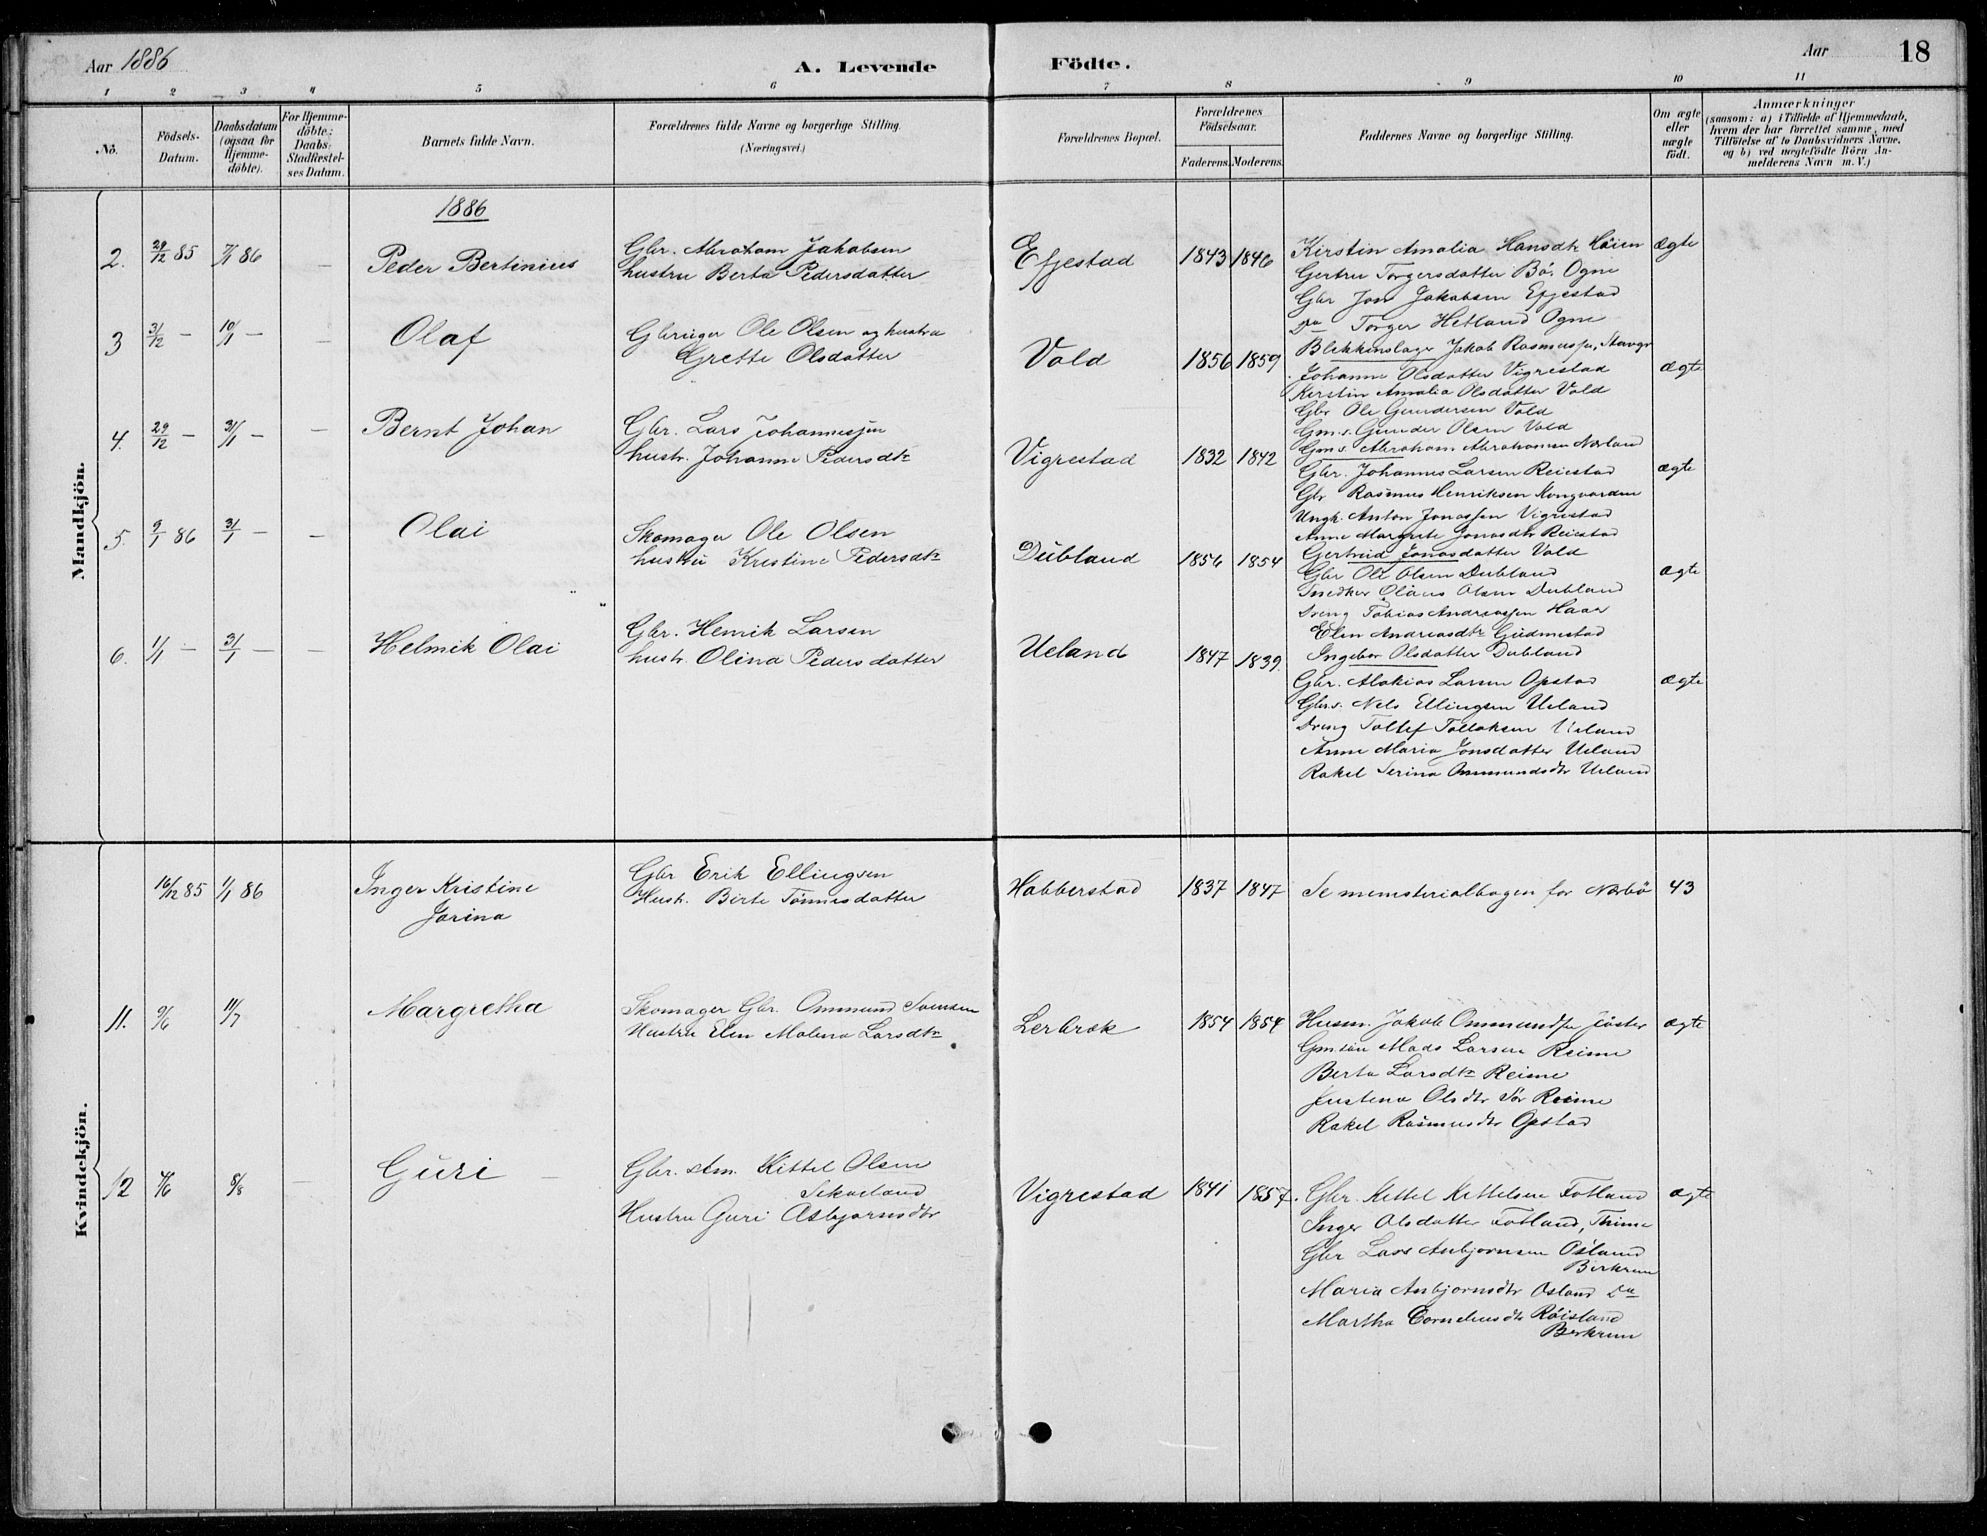 Aar 1886
A. Levende
Födte.
Aar
18
1 2 3 4 5 6 7 8 9 10 11
No.
Födsels-
Datum.
Daabsdatum
(ogsaa for
Hjemme-
döbte).
For Hjemme-
döbte:
Daabs-
Stadfæstel-
ses Datum.
Barnets fulde Navn.
Forældrenes fulde Navne og borgerlige Stilling.
(Næringsvei.)
Forældrenes Bopæl.
Forældrenes
Födselsaar.
Faderens. Moderens.
Faddernes Navne og borgerlige Stilling.
Om ægte
eller
uægte
födt.
Anmærkninger
(saasom: a) i Tilfælde af Hjemmedaab,
hvem der har forrettet samme, med
Tilföielse af to Daabsvidners Navne,
og b) ved uægtefödte Börn An-
melderens Navn m. V.)
Mandkjön.
1886
2. 29/12 85 7/1 86 — Peder Bertinius
Gbr. Abraham Jakobsen
hustru Berta Pedersdatter
Efjestad 1843 1846
Kirstin Amalia Hansdtr Høien
Gertru Torgersdatter Bø, Ogne
Gbr Jon Jakobsen Efjestad
Do Torger Hetland Ogne
ægte
3 31/12 — 10/1 — — Olaf
Gbruger Ole Olsen og hustru
Grette Olsdatter
Vold 1856 1859
Blikkenslager Jakob Rasmussen, Stavgr
Johanne Olsdatter Vigrestad
Kerstin Amalia Olsdatter Vold
Gbr Ole Gundersen Vold
Gms. Gunder Olsen Vold
ægte
4. 29/12 — 31/1 — — Bernt Johan
Gbr. Lars Johannessen
hustr. Johanne Pedersdtr
Vigrestad 1832 1842
Gms. Abraham Abrahamsen Nærland
Gbr. Johannes Larsen Reiestad
Gbr Rasmus Henriksen Kongvarden
Ungk. Anton Jonassen Vigrestad
Anne Margrete Jonasdtr Reiestad
ægte
5. 9/1 86 31/1 — — Olai
Skomager Ole Olsen
hustru Kristine Pedersdtr
Dubland 1856 1854
Gertrud Jonasdatter Vold
Gbr Ole Olsen Dubland
Snedker Olaus Olsen Dubland
Dreng Tobias Andreassen Haar
Elen Andreasdtr Gudmestad
ægte
6. 1/1 — 31/1 — — Helmik Olai
Gbr. Henrik Larsen
hustr. Olina Pedersdatter
Ueland 1847 1839.
Ingebor Olsdatter Dubland
Gbr. Malakias Larsen Opstad
Gbrs. Nels Ellingsen Ueland
Dreng Tollef Tollaksen Ueland
Anne Maria Jonsdatter Ueland
Rakel Serina Ommundsdtr Ueland
ægte
Kvindekjön.
16/12 85 1/1 86 Inger Kristine
Jorina
Gbr Erik Ellingsen
Hustr. Birte Tønnesdatter
Habberstad 1837 1847
Se menisterialbogen for Nærbø 43
11. 9/6 11/7 Margretha
Skomager Gbr. Ommund Svensen
Hustru Elen Malena Larsdtr
Lerbræk 1854 1854
Husm. Jakob Ommundsen Joster
Gmsøn Mads Larsen Reime
Berta Larsdtr Reime
Justena Olsdtr Sør Reime
Rakel Rasmusdtr Opstad
ægte
12 4/6 8/8 — Guri —
Gbr. Am. Kittel Olsen
Sekveland
Hustru Guri Asbjørnsdtr
Vigrestad 1841 1857.
Gbr. Kettel Kettelsen Fotland
Inger Olsdatter Fotland, Thime
Gbr Lars Anbjornsen Osland
Birkrem
Maria Anbjornsdtr Osland Do
Martha Corneliusdtr Røisland
Berkrem
ægte